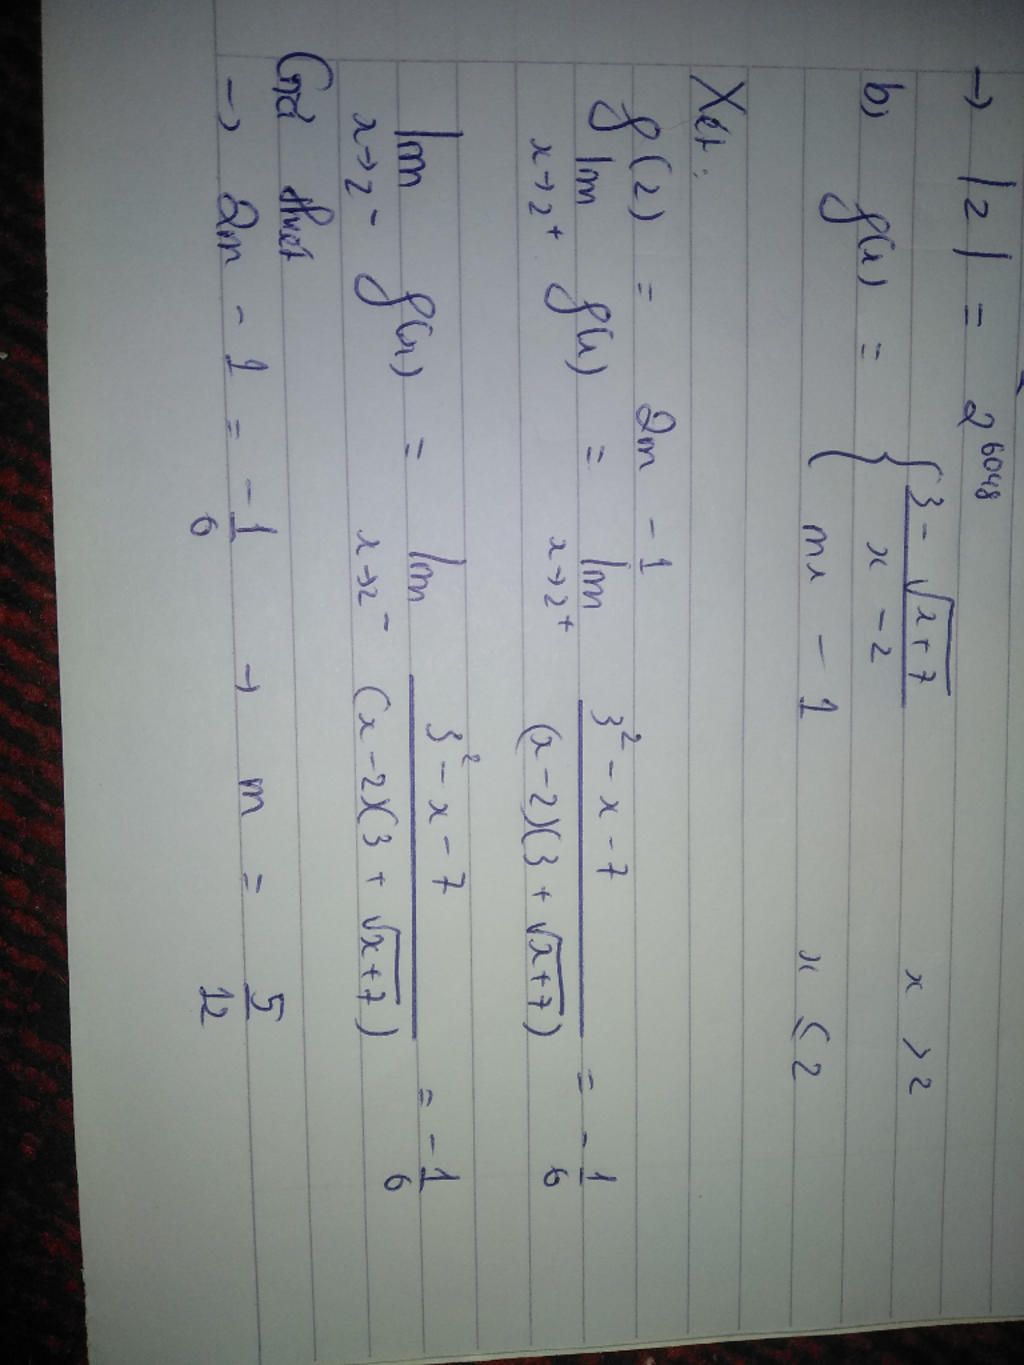 → |z| = 2^6048
b) f(x) = { (3 - √(x+7))/(x - 2)   x > 2
mx - 1   x ≤ 2
Xét:
f(2) = 2m - 1
lim x→2⁺ f(x) = lim x→2⁺ (3² - x - 7)/((x-2)(3 + √(x+7))) = -1/6
lim x→2⁻ f(x) = lim x→2⁻ (3² - x - 7)/((x-2)(3 + √(x+7))) = -1/6
Giả thiết
→ 2m - 1 = -1/6 → m = 5/12